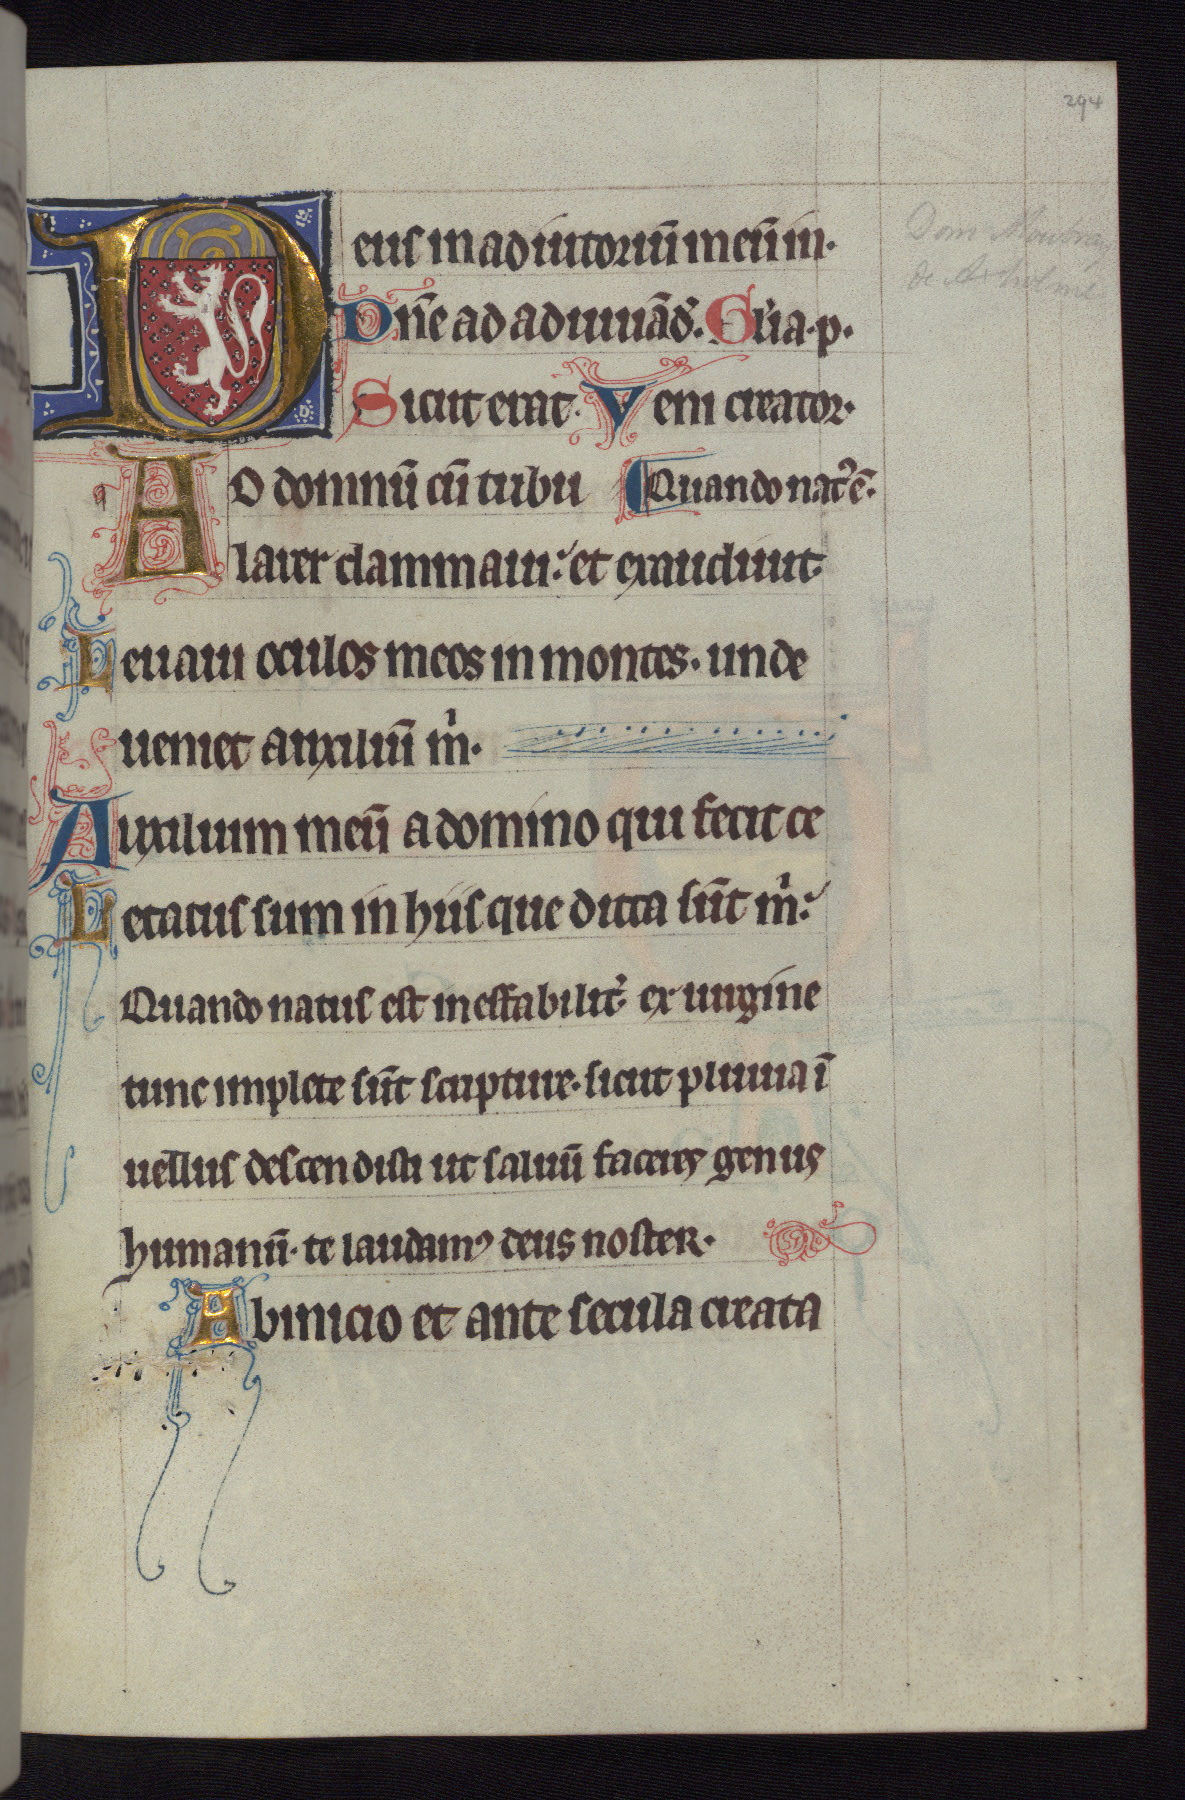 294
Deus in adiutoriū meū in.
Dñe ad adiuuād̄. Gl̄ia. p.
Sicut erat. Veni creator.
AD dominū cū tribu Quando nat᷒ ē.
larer clammaui: et exaudiuit
Leuaui oculos meos in montes. unde
ueniet auxiliū m̄.
Auxilium meū a domino qui fecit ce
Letatus sum in hiis que dicta sūt m̄:
Quando natus est ineffabilit᷒ ex uirgine
tunc implete sūt scripture. sicut pluuia ī
uellus descendisti ut saluū faceres genus
humanū. te laudam᷒ deus noster.
Ab inicio et ante secula creata